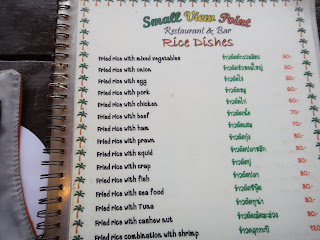 Small View Point
Restaurant & Bar
Rice Dishes
Fried rice with mixed vegetables 60.-
Fried rice with onion 60.-
Fried rice with egg ข้าวผัดไข่ 60.-
Fried rice with pork ข้าวผัดหมู 60.-
Fried rice with chicken ข้าวผัดไก่ 60.-
Fried rice with beef ข้าวผัดเนื้อ 70.-
Fried rice with ham ข้าวผัดแฮม 70.-
Fried rice with prawn ข้าวผัดกุ้ง 70.-
Fried rice with squid ข้าวผัดปลาหมึก
Fried rice with crap ข้าวผัดปู
Fried rice with fish ข้าวผัดปลา
Fried rice with sea food
Fried rice with Tuna ข้าวผัดทูน่า
Fried rice with cashew nut
Fried rice combination with shrimp